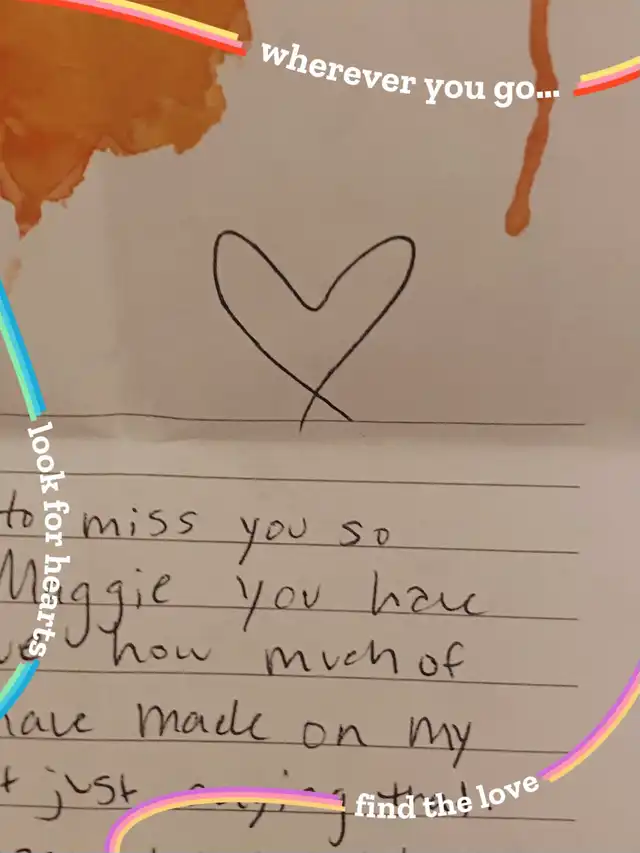 wherever you go...
look for hearts
to miss you so
Maggie you have
how much of
have made on my
just saying that.
find the love